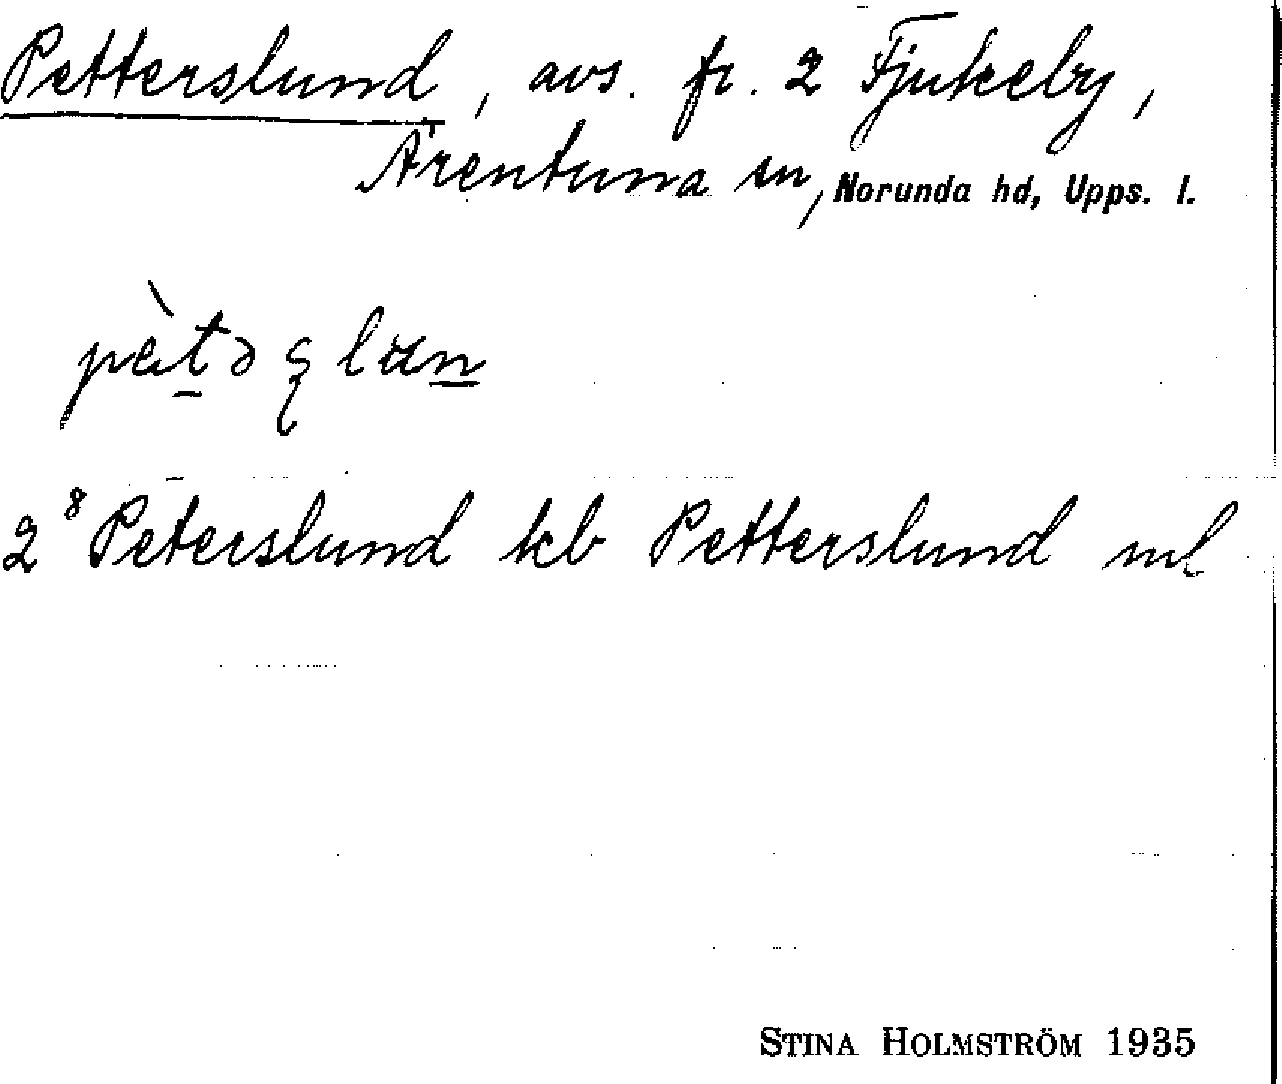 Petterslund, avs. fr. 2 Fjukeby,
Ärentuna sn, Norunda hd, Upps. l.
pèt̲əʂlun̲
2⁸ Peterslund kb Petterslund ml
STINA HOLMSTRÖM 1935